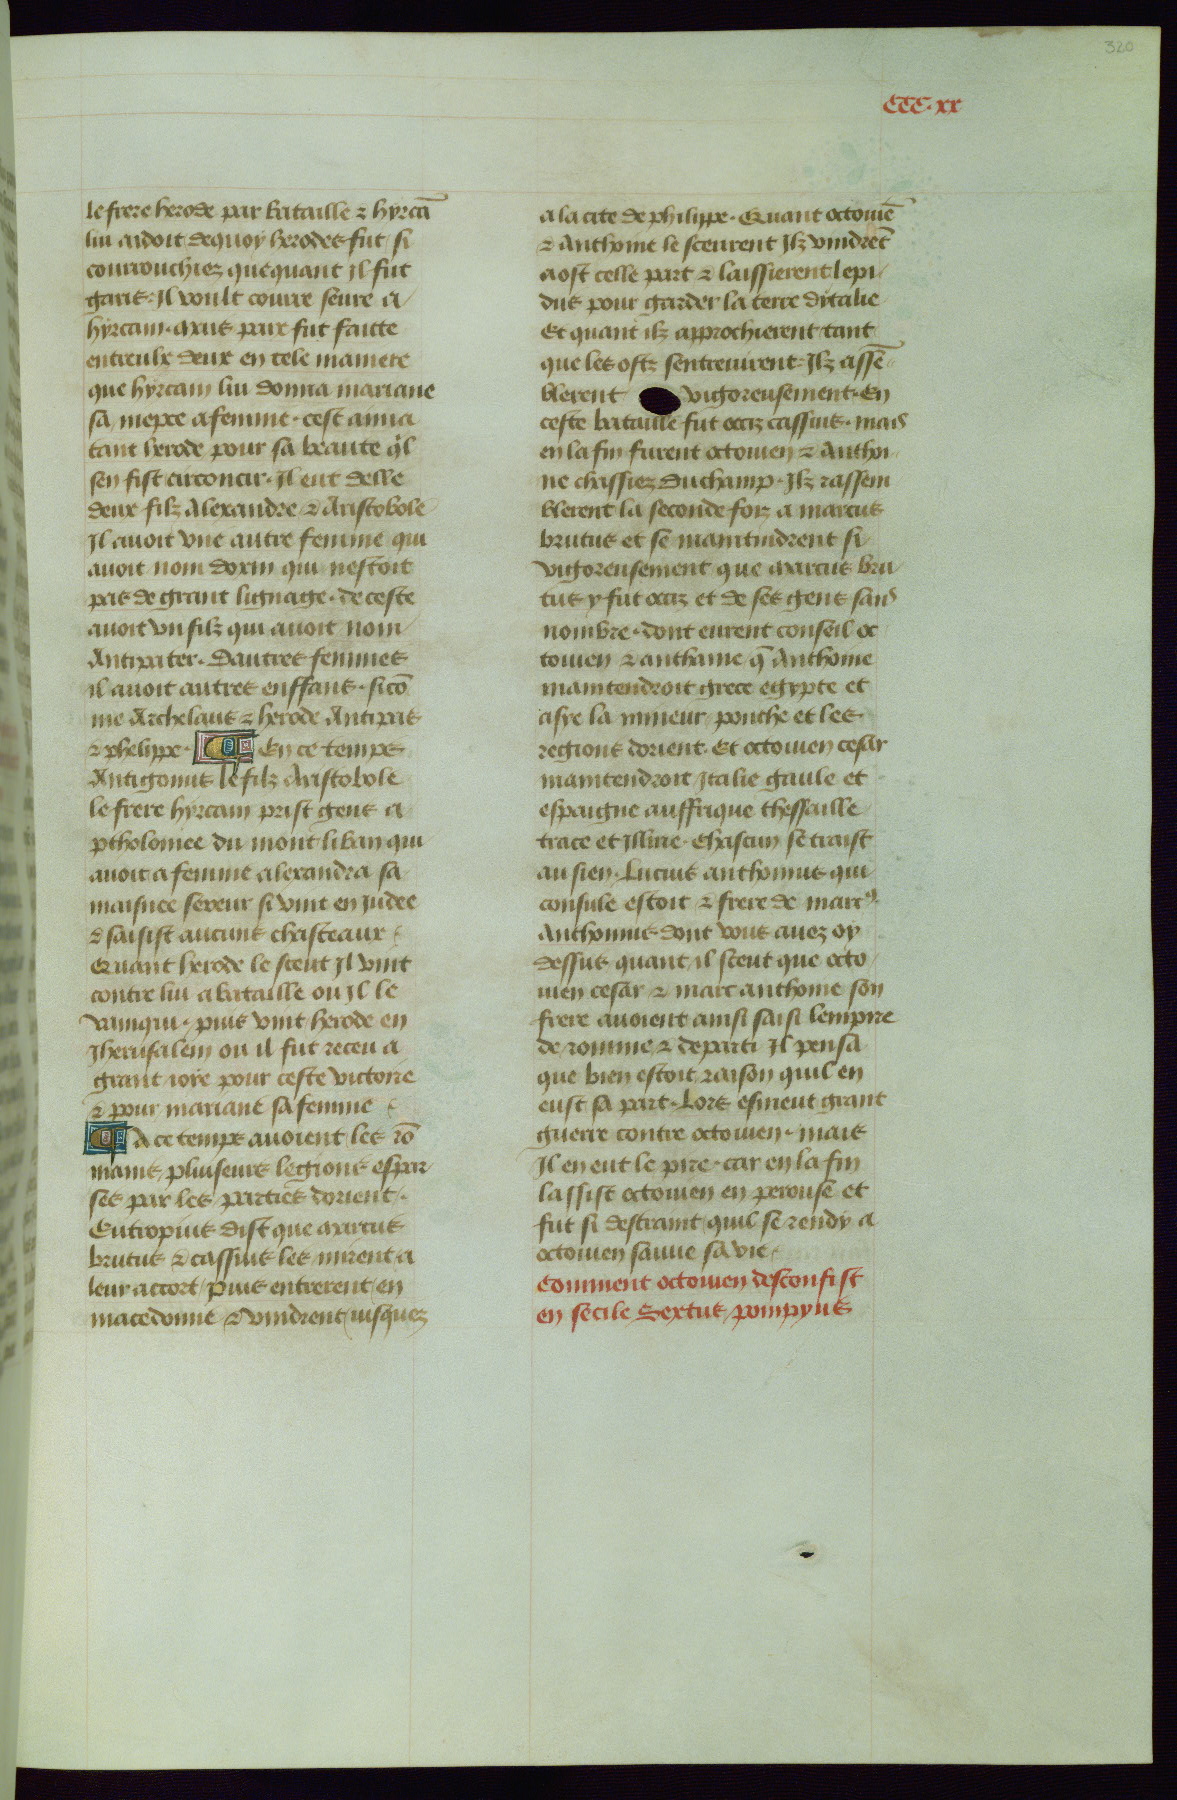 320
CCC·xx
le frere herode par bataille ⁊ hyrcā
lui aidoit de quoy herodes fut si
courrouchiez que quant Il fut
garis· Il voult courre seure a
hyrcam· mais paix fut faicte
entreulx deux en tele maniere
que hyrcam lui donna mariane
sa niepce a femme· cest ama
tant herode pour sa beaute ql
sen fist circoncir· Il eut delle
deux filz Alexandre ⁊ Aristobole
Il avoit vne autre femme qui
auoit nom doxin qui nestoit
pas de grant lignage· de ceste
auoit vn filz qui auoit nom
Antipater· Dautres femmes
il auoit autres enffans· sicō
me Archelaus ⁊ herode Antipas
⁊ phelippe· En ce temps
Antigonus le filz Aristobole
le frere hyrcam prist gens a
ptholomee du mont liban qui
auoit a femme alexandra sa
maisnee sereur si vint en Judee
⁊ saisist aucuns chasteaux
Quant herode le sceut Il vint
contre lui a bataille ou Il le
vainqui· puis vint herode en
Jherusalem ou il fut receu a
grant ioie pour ceste victoire
⁊ pour mariane sa femme
A ce temps auoient les rō
mains pluiseurs legions espar
ses par les parties dorient·
Eutropius dist que marcus
brutus ⁊ cassius les mirent a
leur accort puis entrerent en
macedoine ⁊ vindrent iusquez
a la cite de philippe· Quant octouiē
⁊ Anthoine le sceurent Ilz vindrēt
a ost celle part ⁊ laissierent lepi
dus pour garder la terre ditalie
Et quant ilz approchierent tant
que les ostz sentreuirent· Ilz assē
blerent vigoreusement· En
ceste bataille fut occiz cassius· mais
en la fin furent octouien ⁊ Anthoi
ne chassiez du champ· Ilz rassem
blerent la seconde foiz a marcus
brutus et se maintindrent si
vigoreusement que marcus bru
tus y fut occiz et de ses gens sans
nombre· dont eurent conseil oc
touien ⁊ anthoine q̄ Anthoine
maintendroit grece egypte et
aisye la mineur ponthe et les
regions dorient· Et octouien cesar
maintendroit Italie gaule et
espaigne auffrique thessaille
trace et Illirie· Chascun se traist
au sien· Lucius anthonius qui
consule estoit ⁊ frere de marcꝰ
Anthonius dont vous auez oy
dessus quant il sceut que octo
uien cesar ⁊ marc anthoine son
frere auoient ainsi saisi lempire
de romme ⁊ departi Il pensa
que bien estoit raison quil en
eust sa part· Lors esmeut grant
guerre contre octouien· mais
Il en eut le pire· car en la fin
lassist octouien en perouse et
fut si destraint quil se rendy a
octouien sauue sa vie
Comment octouien desconfist
en secile Sextus pompyus